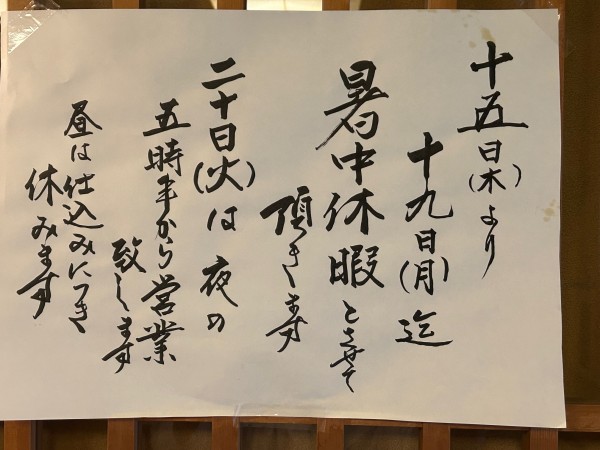 十五日(木)より
十九日(月)迄
暑中休暇とさせて
頂きます
二十日(火)は夜の
五時半から営業
致します
昼は仕込みにつき
休みます